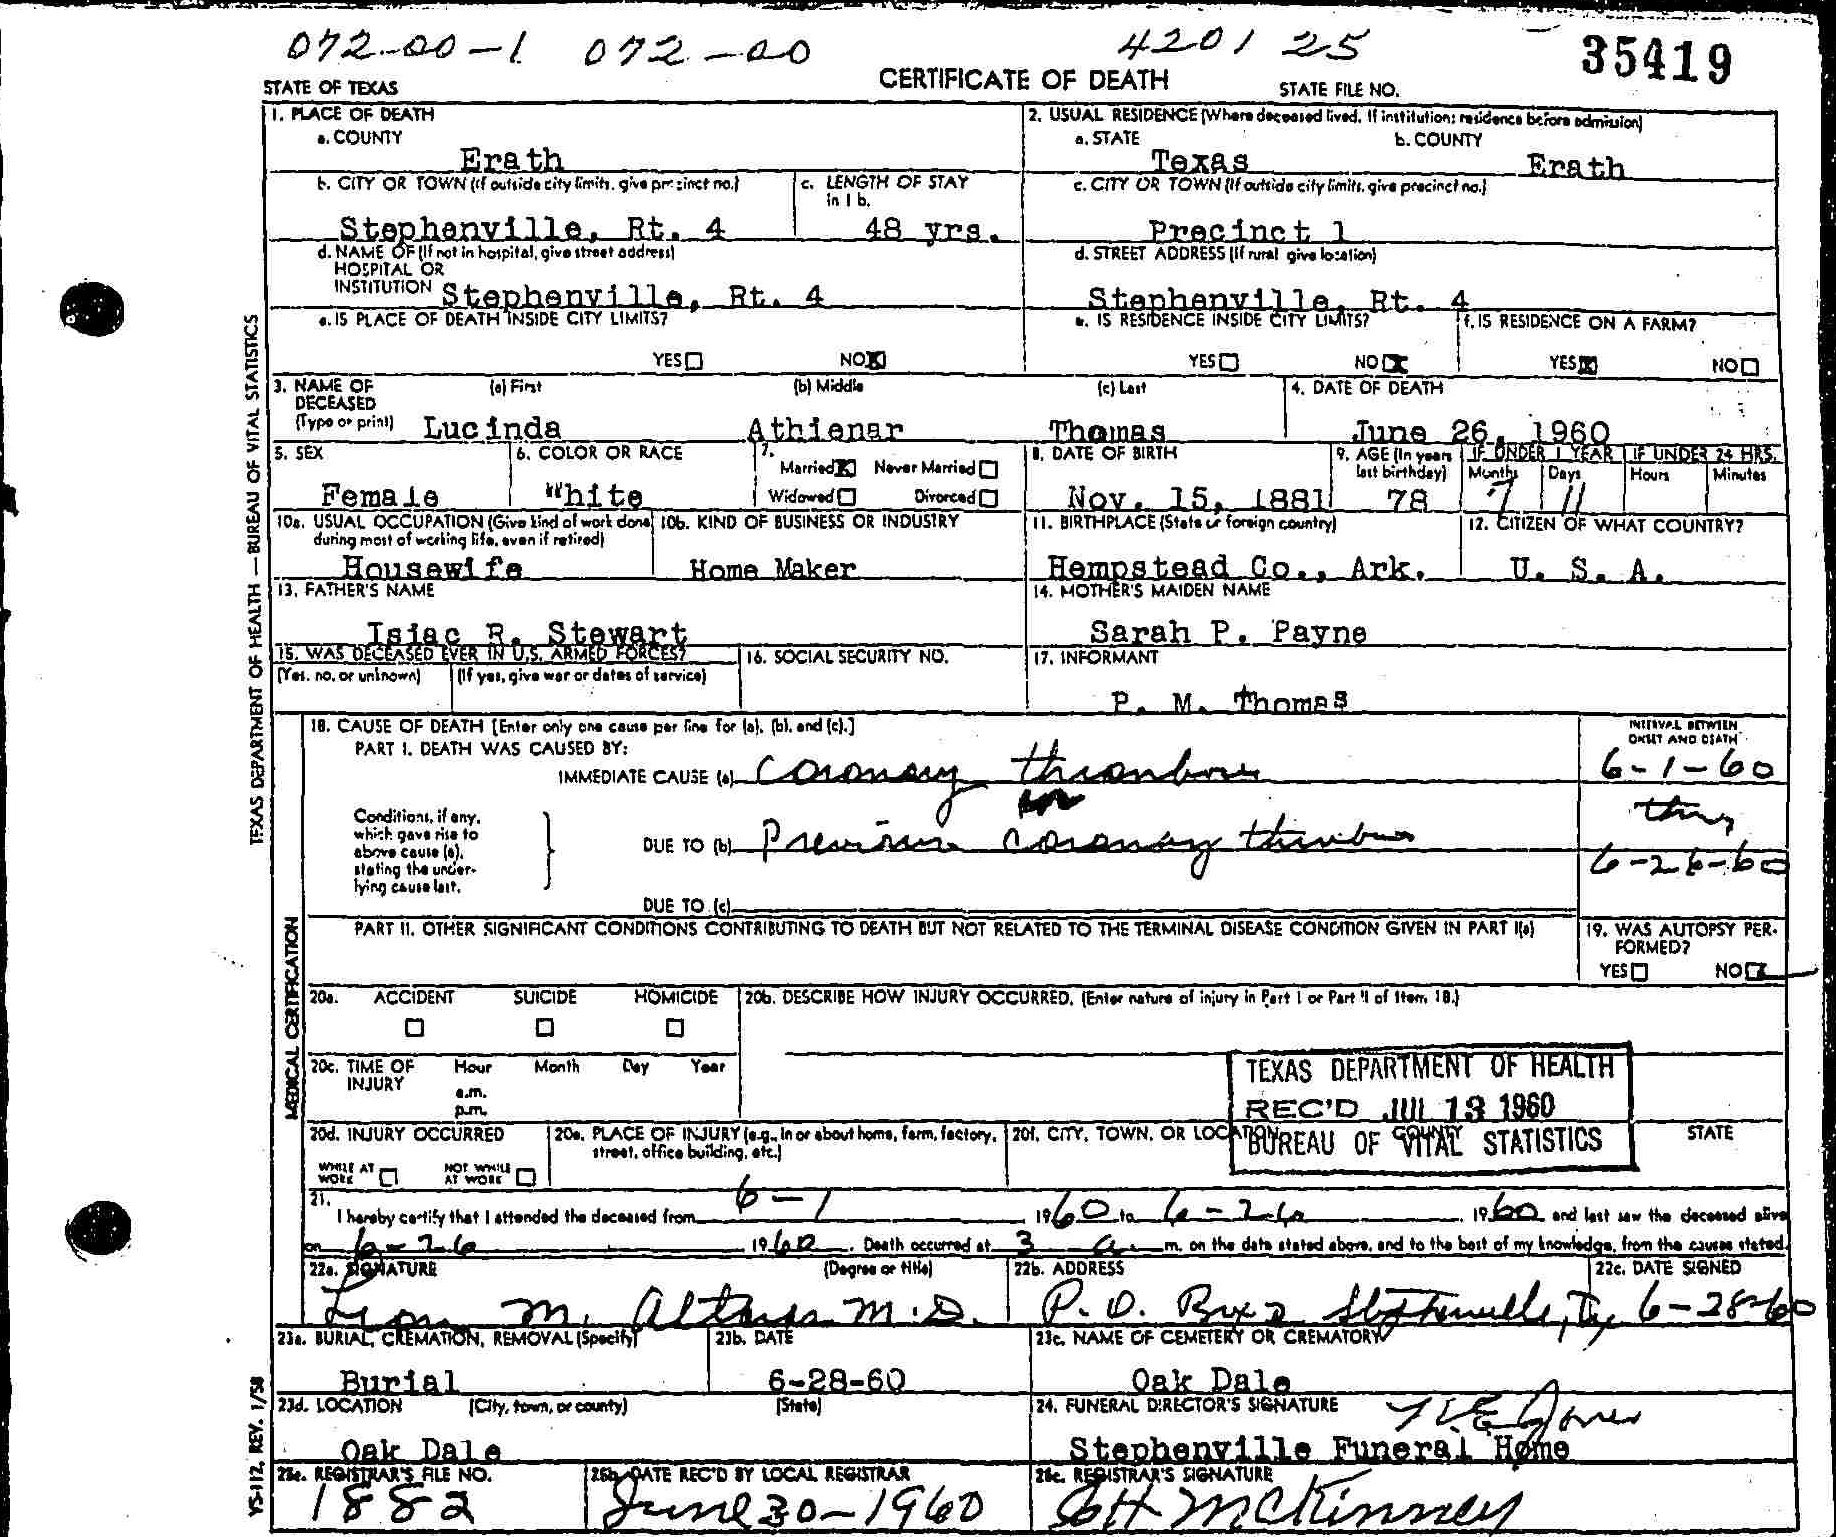 072-00-1 072-00 4201 25 35419
STATE OF TEXAS CERTIFICATE OF DEATH STATE FILE NO.
1. PLACE OF DEATH
a. COUNTY
Erath
2. USUAL RESIDENCE (Where deceased lived. If institution: residence before admission)
a. STATE b. COUNTY
Texas Erath
b. CITY OR TOWN (If outside city limits, give precinct no.)
Stephenville, Rt. 4
c. LENGTH OF STAY in 1 b.
48 yrs.
c. CITY OR TOWN (If outside city limits, give precinct no.)
Precinct 1
d. NAME OF (If not in hospital, give street address)
HOSPITAL OR
INSTITUTION Stephenville, Rt. 4
d. STREET ADDRESS (If rural give location)
Stephenville, Rt. 4
e. IS PLACE OF DEATH INSIDE CITY LIMITS?
YES NO X
e. IS RESIDENCE INSIDE CITY LIMITS?
YES NO X
f. IS RESIDENCE ON A FARM?
YES X NO
3. NAME OF DECEASED (Type or print)
(a) First (b) Middle (c) Last
Lucinda Athienar Thomas
4. DATE OF DEATH
June 26, 1960
5. SEX
Female
6. COLOR OR RACE
White
7.
Married X Never Married
Widowed Divorced
8. DATE OF BIRTH
Nov. 15, 1881
9. AGE (In years last birthday)
78
IF UNDER 1 YEAR
Months Days
7 11
IF UNDER 24 HRS.
Hours Minutes
10a. USUAL OCCUPATION (Give kind of work done during most of working life, even if retired)
Housewife
10b. KIND OF BUSINESS OR INDUSTRY
Home Maker
11. BIRTHPLACE (State or foreign country)
Hempstead Co., Ark.
12. CITIZEN OF WHAT COUNTRY?
U. S. A.
13. FATHER'S NAME
Isiac R. Stewart
14. MOTHER'S MAIDEN NAME
Sarah P. Payne
15. WAS DECEASED EVER IN U.S. ARMED FORCES?
(Yes, no, or unknown) (If yes, give war or dates of service)
16. SOCIAL SECURITY NO.
17. INFORMANT
P. M. Thomas
18. CAUSE OF DEATH [Enter only one cause per line for (a), (b), and (c).]
PART I. DEATH WAS CAUSED BY:
IMMEDIATE CAUSE (a) Coronary thrombus
Conditions, if any, which gave rise to above cause (a), stating the underlying cause last.
DUE TO (b) Previous coronary thrombus
DUE TO (c)
INTERVAL BETWEEN ONSET AND DEATH
6-1-60
thru
6-26-60
PART II. OTHER SIGNIFICANT CONDITIONS CONTRIBUTING TO DEATH BUT NOT RELATED TO THE TERMINAL DISEASE CONDITION GIVEN IN PART I(a)
19. WAS AUTOPSY PERFORMED?
YES NO
20a. ACCIDENT SUICIDE HOMICIDE
20b. DESCRIBE HOW INJURY OCCURRED. (Enter nature of injury in Part I or Part II of Item 18.)
20c. TIME OF INJURY Hour Month Day Year
a.m.
p.m.
TEXAS DEPARTMENT OF HEALTH
REC'D JUL 13 1960
BUREAU OF VITAL STATISTICS
20d. INJURY OCCURRED
WHILE AT WORK NOT WHILE AT WORK
20e. PLACE OF INJURY (e.g., in or about home, farm, factory, street, office building, etc.)
20f. CITY, TOWN, OR LOCATION COUNTY STATE
21.
I hereby certify that I attended the deceased from 6-1 1960 to 6-26 1960 and last saw the deceased alive
on 6-26 1960. Death occurred at 3 a. m. on the date stated above, and to the best of my knowledge, from the causes stated.
22a. SIGNATURE (Degree or title)
M. M.D.
22b. ADDRESS
P.O. Box Stephenville, Tx
22c. DATE SIGNED
6-28-60
23a. BURIAL, CREMATION, REMOVAL (Specify)
Burial
23b. DATE
6-28-60
23c. NAME OF CEMETERY OR CREMATORY
Oak Dale
23d. LOCATION (City, town, or county) (State)
Oak Dale
24. FUNERAL DIRECTOR'S SIGNATURE
Jones
Stephenville Funeral Home
25a. REGISTRAR'S FILE NO.
1882
25b. DATE REC'D BY LOCAL REGISTRAR
June 30-1960
25c. REGISTRAR'S SIGNATURE
McKinney
TEXAS DEPARTMENT OF HEALTH — BUREAU OF VITAL STATISTICS
MEDICAL CERTIFICATION
VS-112, REV. 1/58